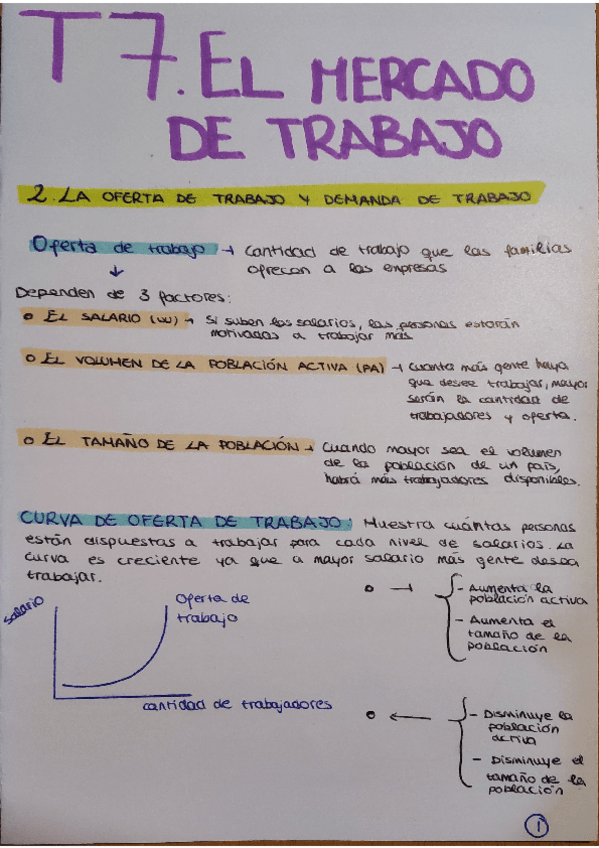 T 7. EL MERCADO
DE TRABAJO
2. LA OFERTA DE TRABAJO Y DEMANDA DE TRABAJO
Oferta de trabajo → Cantidad de trabajo que las familias
ofrecen a las empresas
↓
Dependen de 3 factores:
o EL SALARIO (w) → Si suben los salarios, las personas estarán
motivadas a trabajar más
o EL VOLUMEN DE LA POBLACIÓN ACTIVA (PA) → Cuanta más gente haya
que desee trabajar, mayor
serán la cantidad de
trabajadores y oferta.
o EL TAMAÑO DE LA POBLACIÓN → Cuando mayor sea el volumen
de la población de un país,
habrá más trabajadores disponibles.
CURVA DE OFERTA DE TRABAJO: Muestra cuántas personas
están dispuestas a trabajar para cada nivel de salarios. La
curva es creciente ya que a mayor salario más gente desea
trabajar.
salario
Oferta de
trabajo
cantidad de trabajadores
o → { - Aumenta la
población activa
- Aumenta el
tamaño de la
población
o ← { - Disminuye la
población
activa
- Disminuye el
tamaño de la
población
1